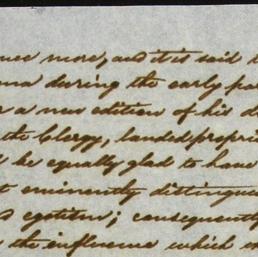 more, and it is said
during the early
a new edition of his
the Clergy, landed propri
be equally glad to have
eminently distingu
egotism; consequently
the influence which